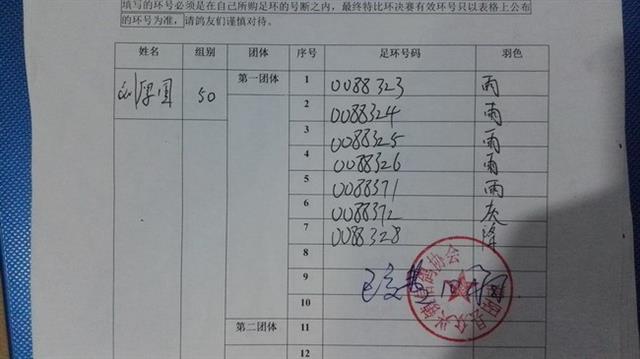 填写的环号必须是在自己所购足环的号断之内，最终特比环决赛有效环号只以表格上公布
的环号为准，请鸽友们谨慎对待。
姓名 组别 团体 序号 足环号码 羽色
50 第一团体 1 0088323 雨
2 0088324 雨
3 0088325 雨
4 0088326 雨
5 0088371 雨
6 0088372 灰
7 0088328 绛
8
9
10
第二团体 11
12